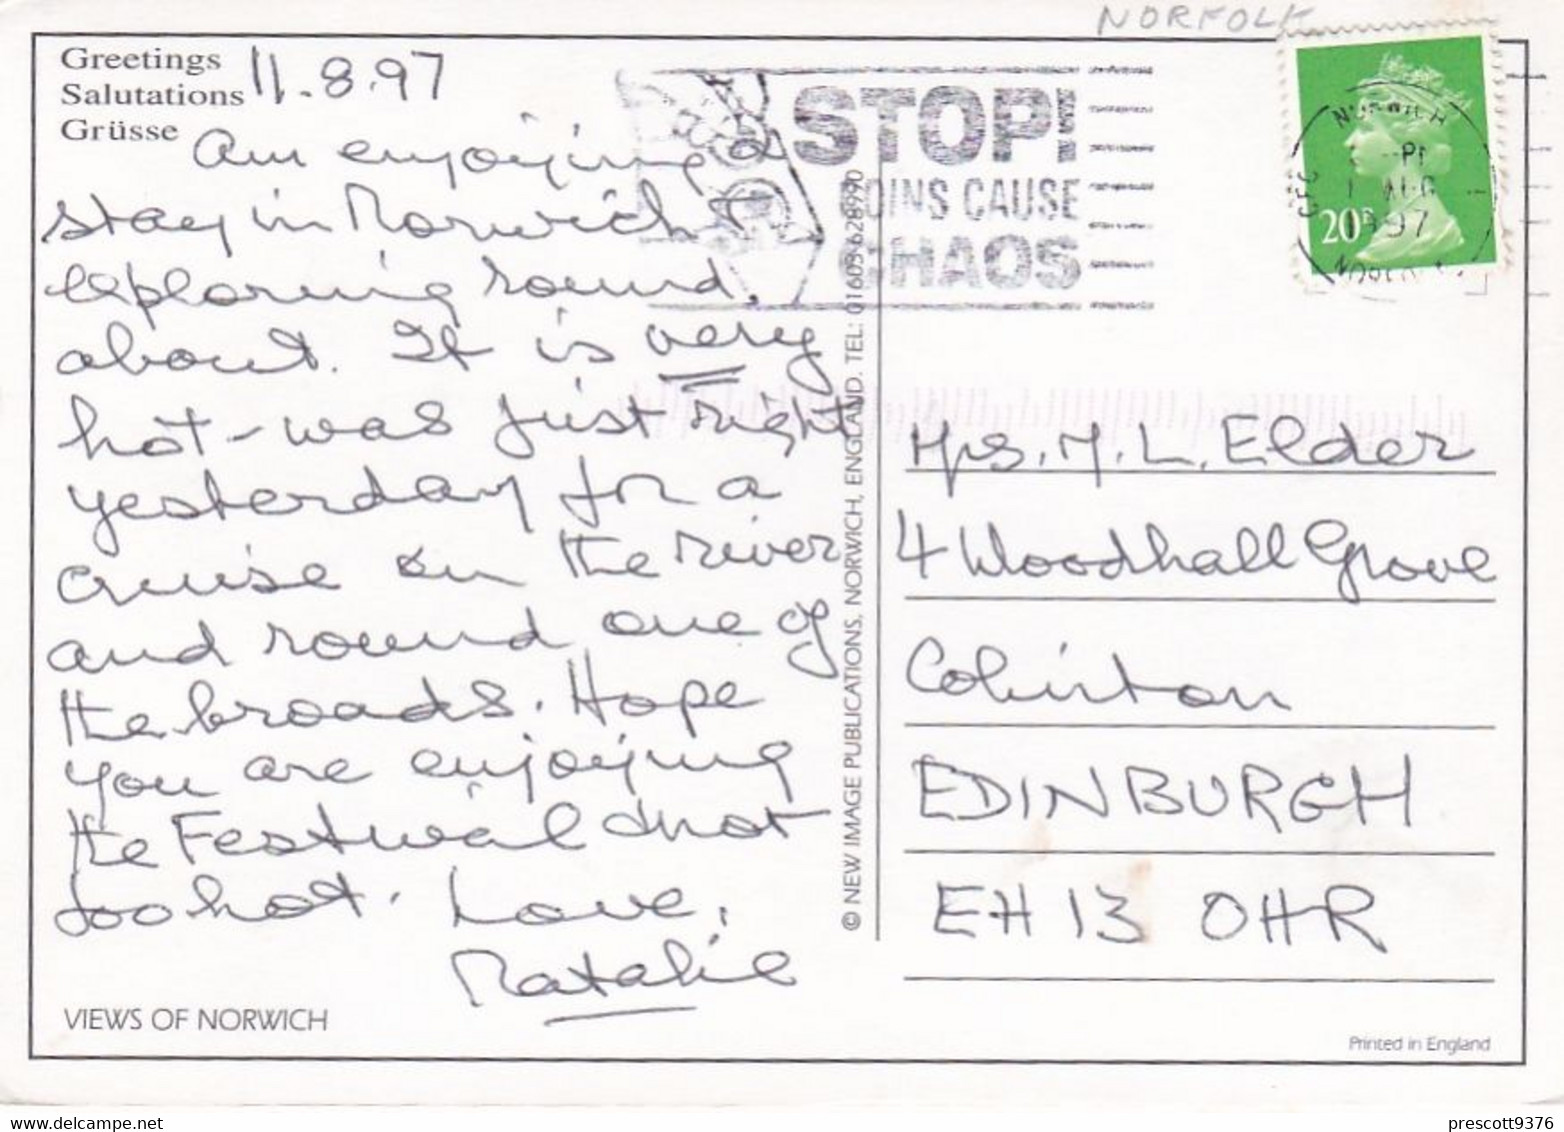 NORFOLK
Greetings
Salutations
Grüsse
11.8.97
Am enjoying a
stay in Norwich &
exploring round
about. It is very
hot - was just right
yesterday for a
cruise on the river
and round one of
the broads. Hope
you are enjoying
the Festival & not
too hot. Love,
Natalie
VIEWS OF NORWICH
© NEW IMAGE PUBLICATIONS, NORWICH, ENGLAND. TEL: 01603 628990
STOP!
COINS CAUSE
CHAOS
NORWICH
AUG
1997
NORFOLK
20P
Mrs. M. L. Elder
4 Woodhall Grove
Colinton
EDINBURGH
EH13 0HR
Printed in England
prescott9376